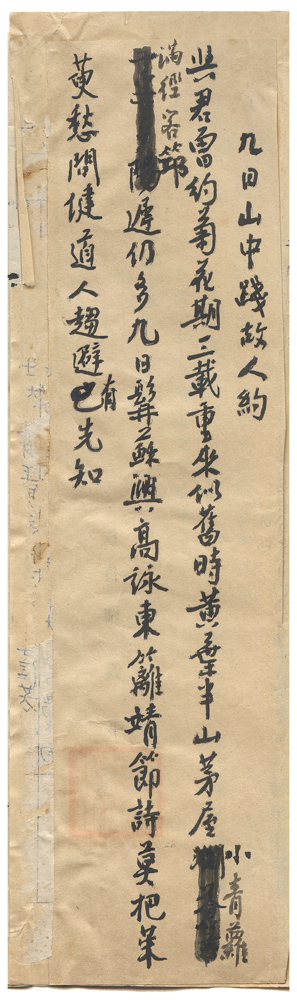 九日山中踐故人約
與君曾約菊花期三載重來似舊時黃葉半山茅屋小青蘿
滿徑客筇遲仍多九日髯蘇興高詠東籬靖節詩莫把茱
萸愁問健道人趨避有先知